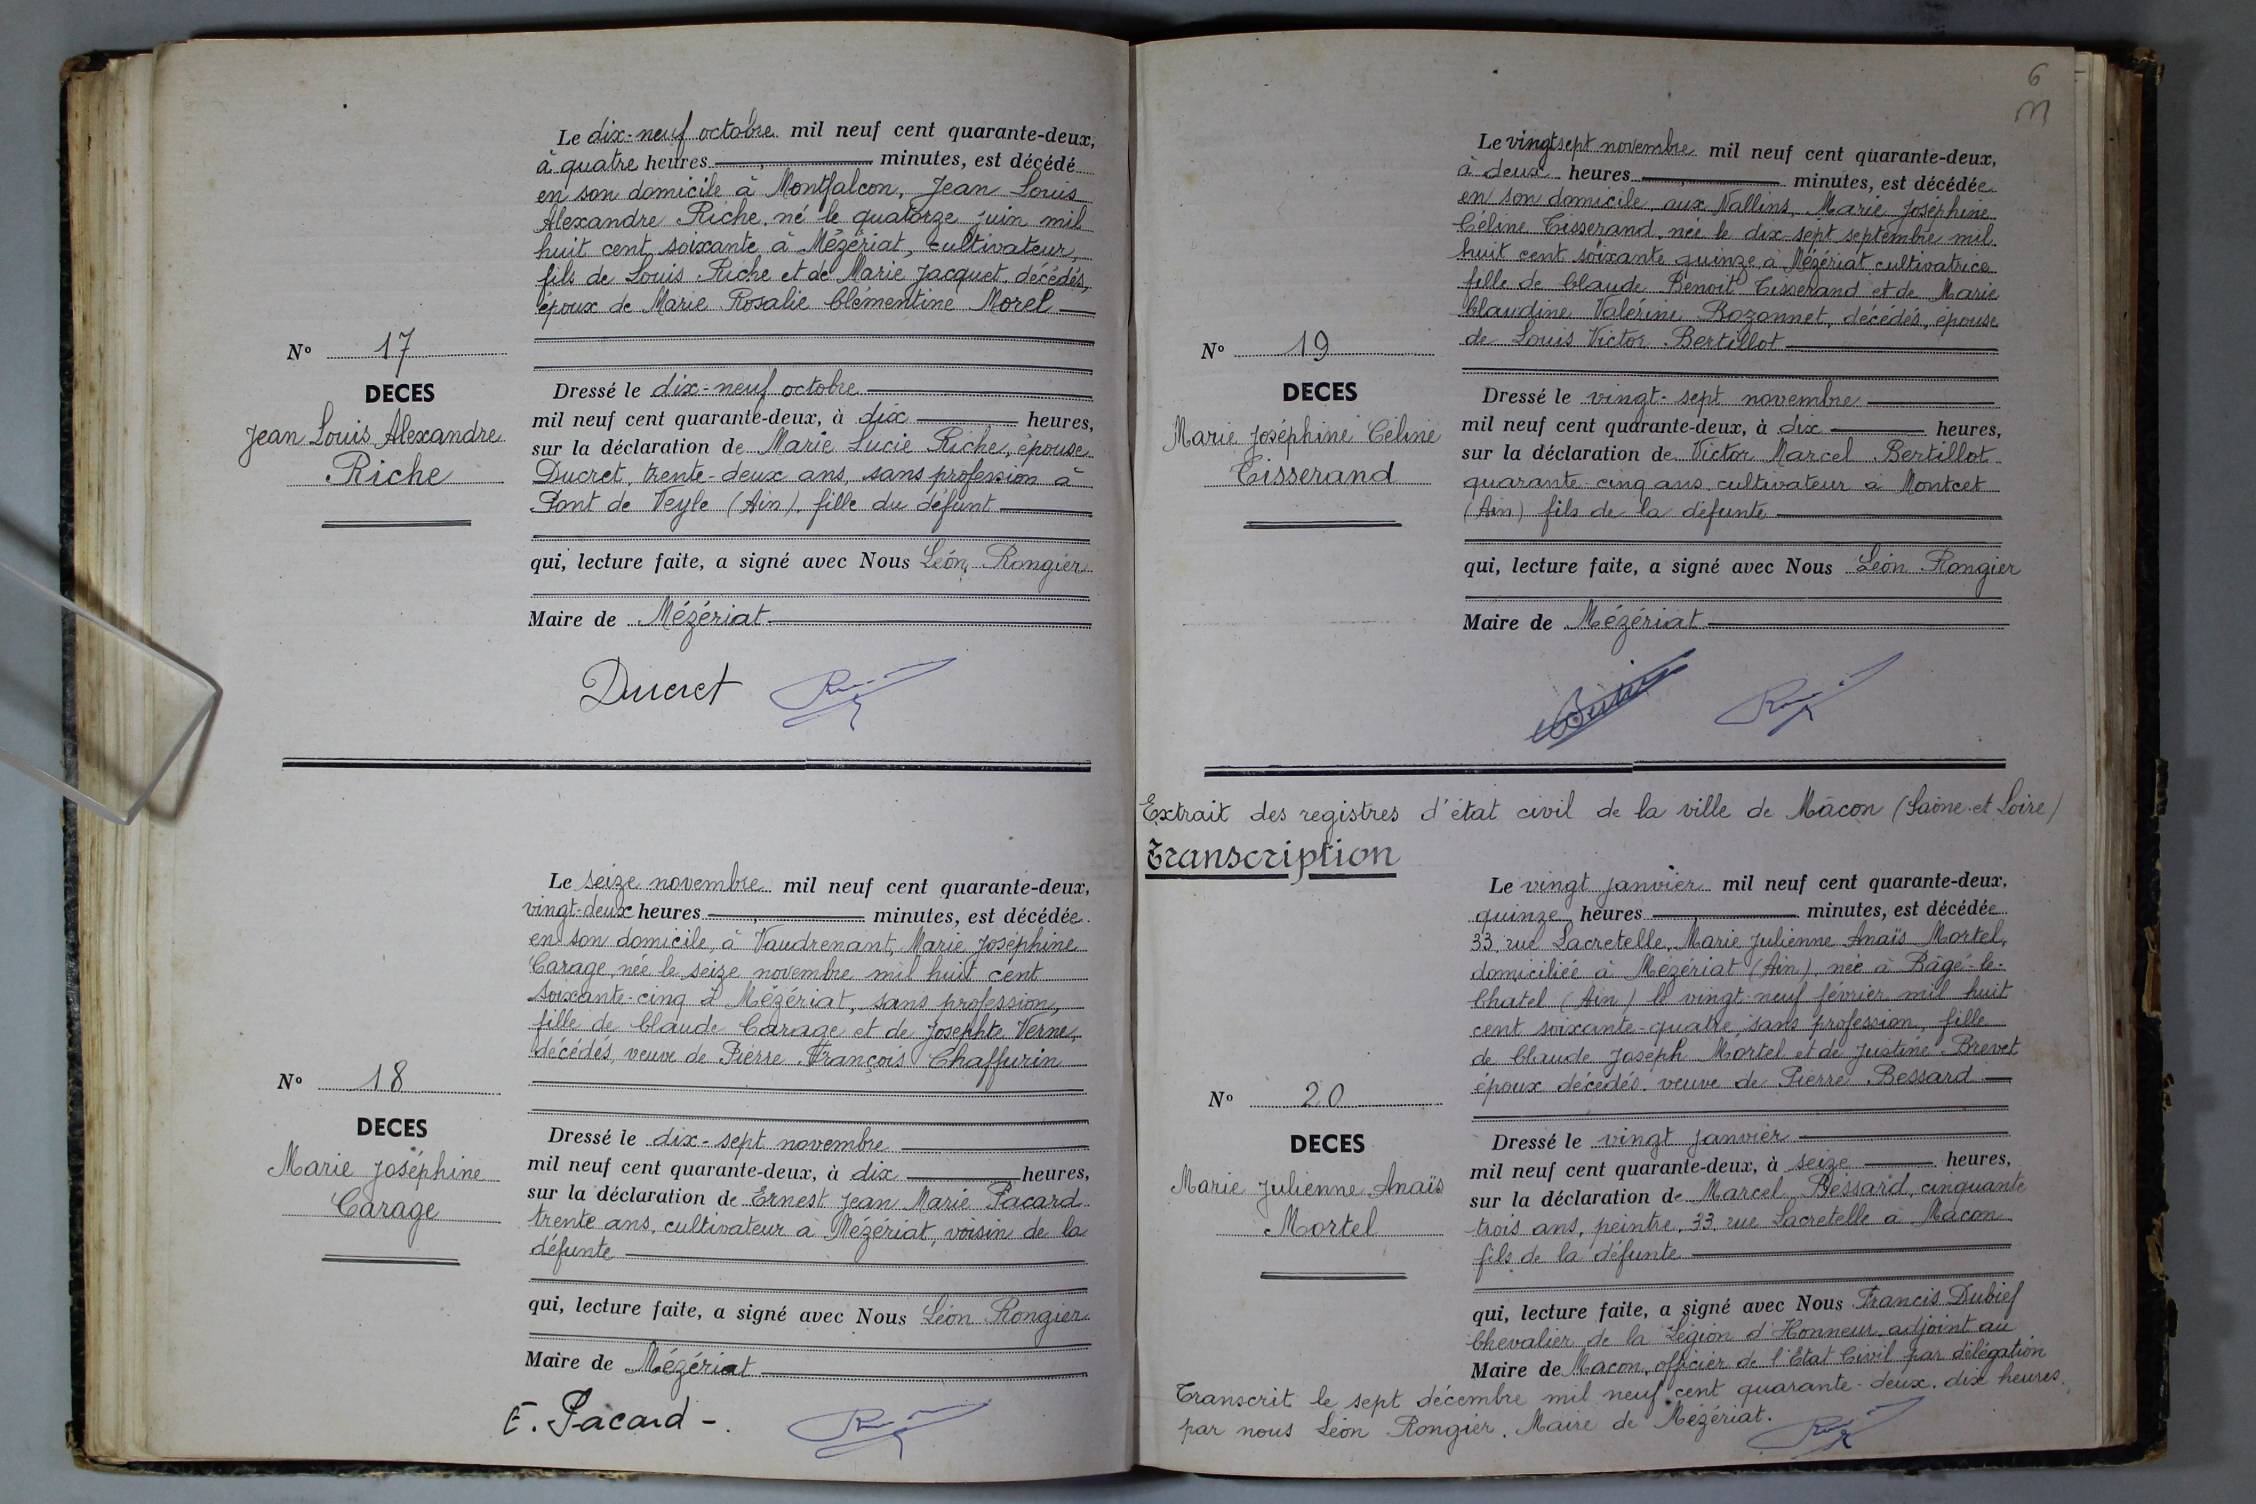 Le dix-neuf octobre mil neuf cent quarante-deux,
à quatre heures minutes, est décédé
en son domicile à Montfalcon, Jean Louis
Alexandre Riche, né le quatorze juin mil
huit cent soixante à Mézériat, cultivateur,
fils de Louis Riche et de Marie Jacquet, décédés,
époux de Marie Rosalie Clémentine Morel
N° 17
DECES
Jean Louis Alexandre
Riche
Dressé le dix-neuf octobre
mil neuf cent quarante-deux, à dix heures,
sur la déclaration de Marie Lucie Riche, épouse
Ducret, trente-deux ans, sans profession à
Pont de Veyle (Ain), fille du défunt
qui, lecture faite, a signé avec Nous Léon Rongier
Maire de Mézériat
Ducret
Le seize novembre mil neuf cent quarante-deux,
vingt-deux heures minutes, est décédée
en son domicile, à Vaudrenant, Marie Joséphine
Carage, née le seize novembre mil huit cent
soixante-cinq à Mézériat, sans profession,
fille de Claude Carage et de Josephte Verne,
décédés, veuve de Pierre François Chaffurin
N° 18
DECES
Marie Joséphine
Carage
Dressé le dix-sept novembre
mil neuf cent quarante-deux, à dix heures,
sur la déclaration de Ernest Jean Marie Pacard
trente ans, cultivateur à Mézériat, voisin de la
défunte
qui, lecture faite, a signé avec Nous Léon Rongier
Maire de Mézériat
E. Pacard -
6
Le vingt sept novembre mil neuf cent quarante-deux,
à deux heures minutes, est décédée
en son domicile, aux Nallins, Marie Joséphine
Céline Tisserand, née le dix-sept septembre mil
huit cent soixante quinze à Mézériat cultivatrice
fille de Claude Benoit Tisserand et de Marie
Claudine Valérine Rozonnet, décédés, épouse
de Louis Victor Bertillot
N° 19
DECES
Marie Joséphine Céline
Tisserand
Dressé le vingt-sept novembre
mil neuf cent quarante-deux, à dix heures,
sur la déclaration de Victor Marcel Bertillot
quarante-cinq ans, cultivateur à Montcet
(Ain) fils de la défunte
qui, lecture faite, a signé avec Nous Léon Rongier
Maire de Mézériat
Extrait des registres d'état civil de la ville de Mâcon (Saône et Loire)
Transcription
Le vingt janvier mil neuf cent quarante-deux,
quinze heures minutes, est décédée
33, rue Lacretelle, Marie Julienne Anaïs Mortel,
domiciliée à Mézériat (Ain), née à Bâgé-le-
Chatel (Ain) le vingt-neuf février mil huit
cent soixante-quatre, sans profession, fille
de Claude Joseph Mortel et de Justine Brevet
époux décédés. veuve de Pierre Bessard
N° 20
DECES
Marie Julienne Anaïs
Mortel
Dressé le vingt janvier
mil neuf cent quarante-deux, à seize heures,
sur la déclaration de Marcel Bessard, cinquante
trois ans, peintre, 33 rue Lacretelle à Macon
fils de la défunte
qui, lecture faite, a signé avec Nous Francis Dubief
Chevalier de la Légion d'Honneur, adjoint au
Maire de Macon, officier de l'Etat Civil par délégation
Transcrit le sept décembre mil neuf cent quarante-deux, dix heures.
par nous Léon Rongier, Maire de Mézériat.